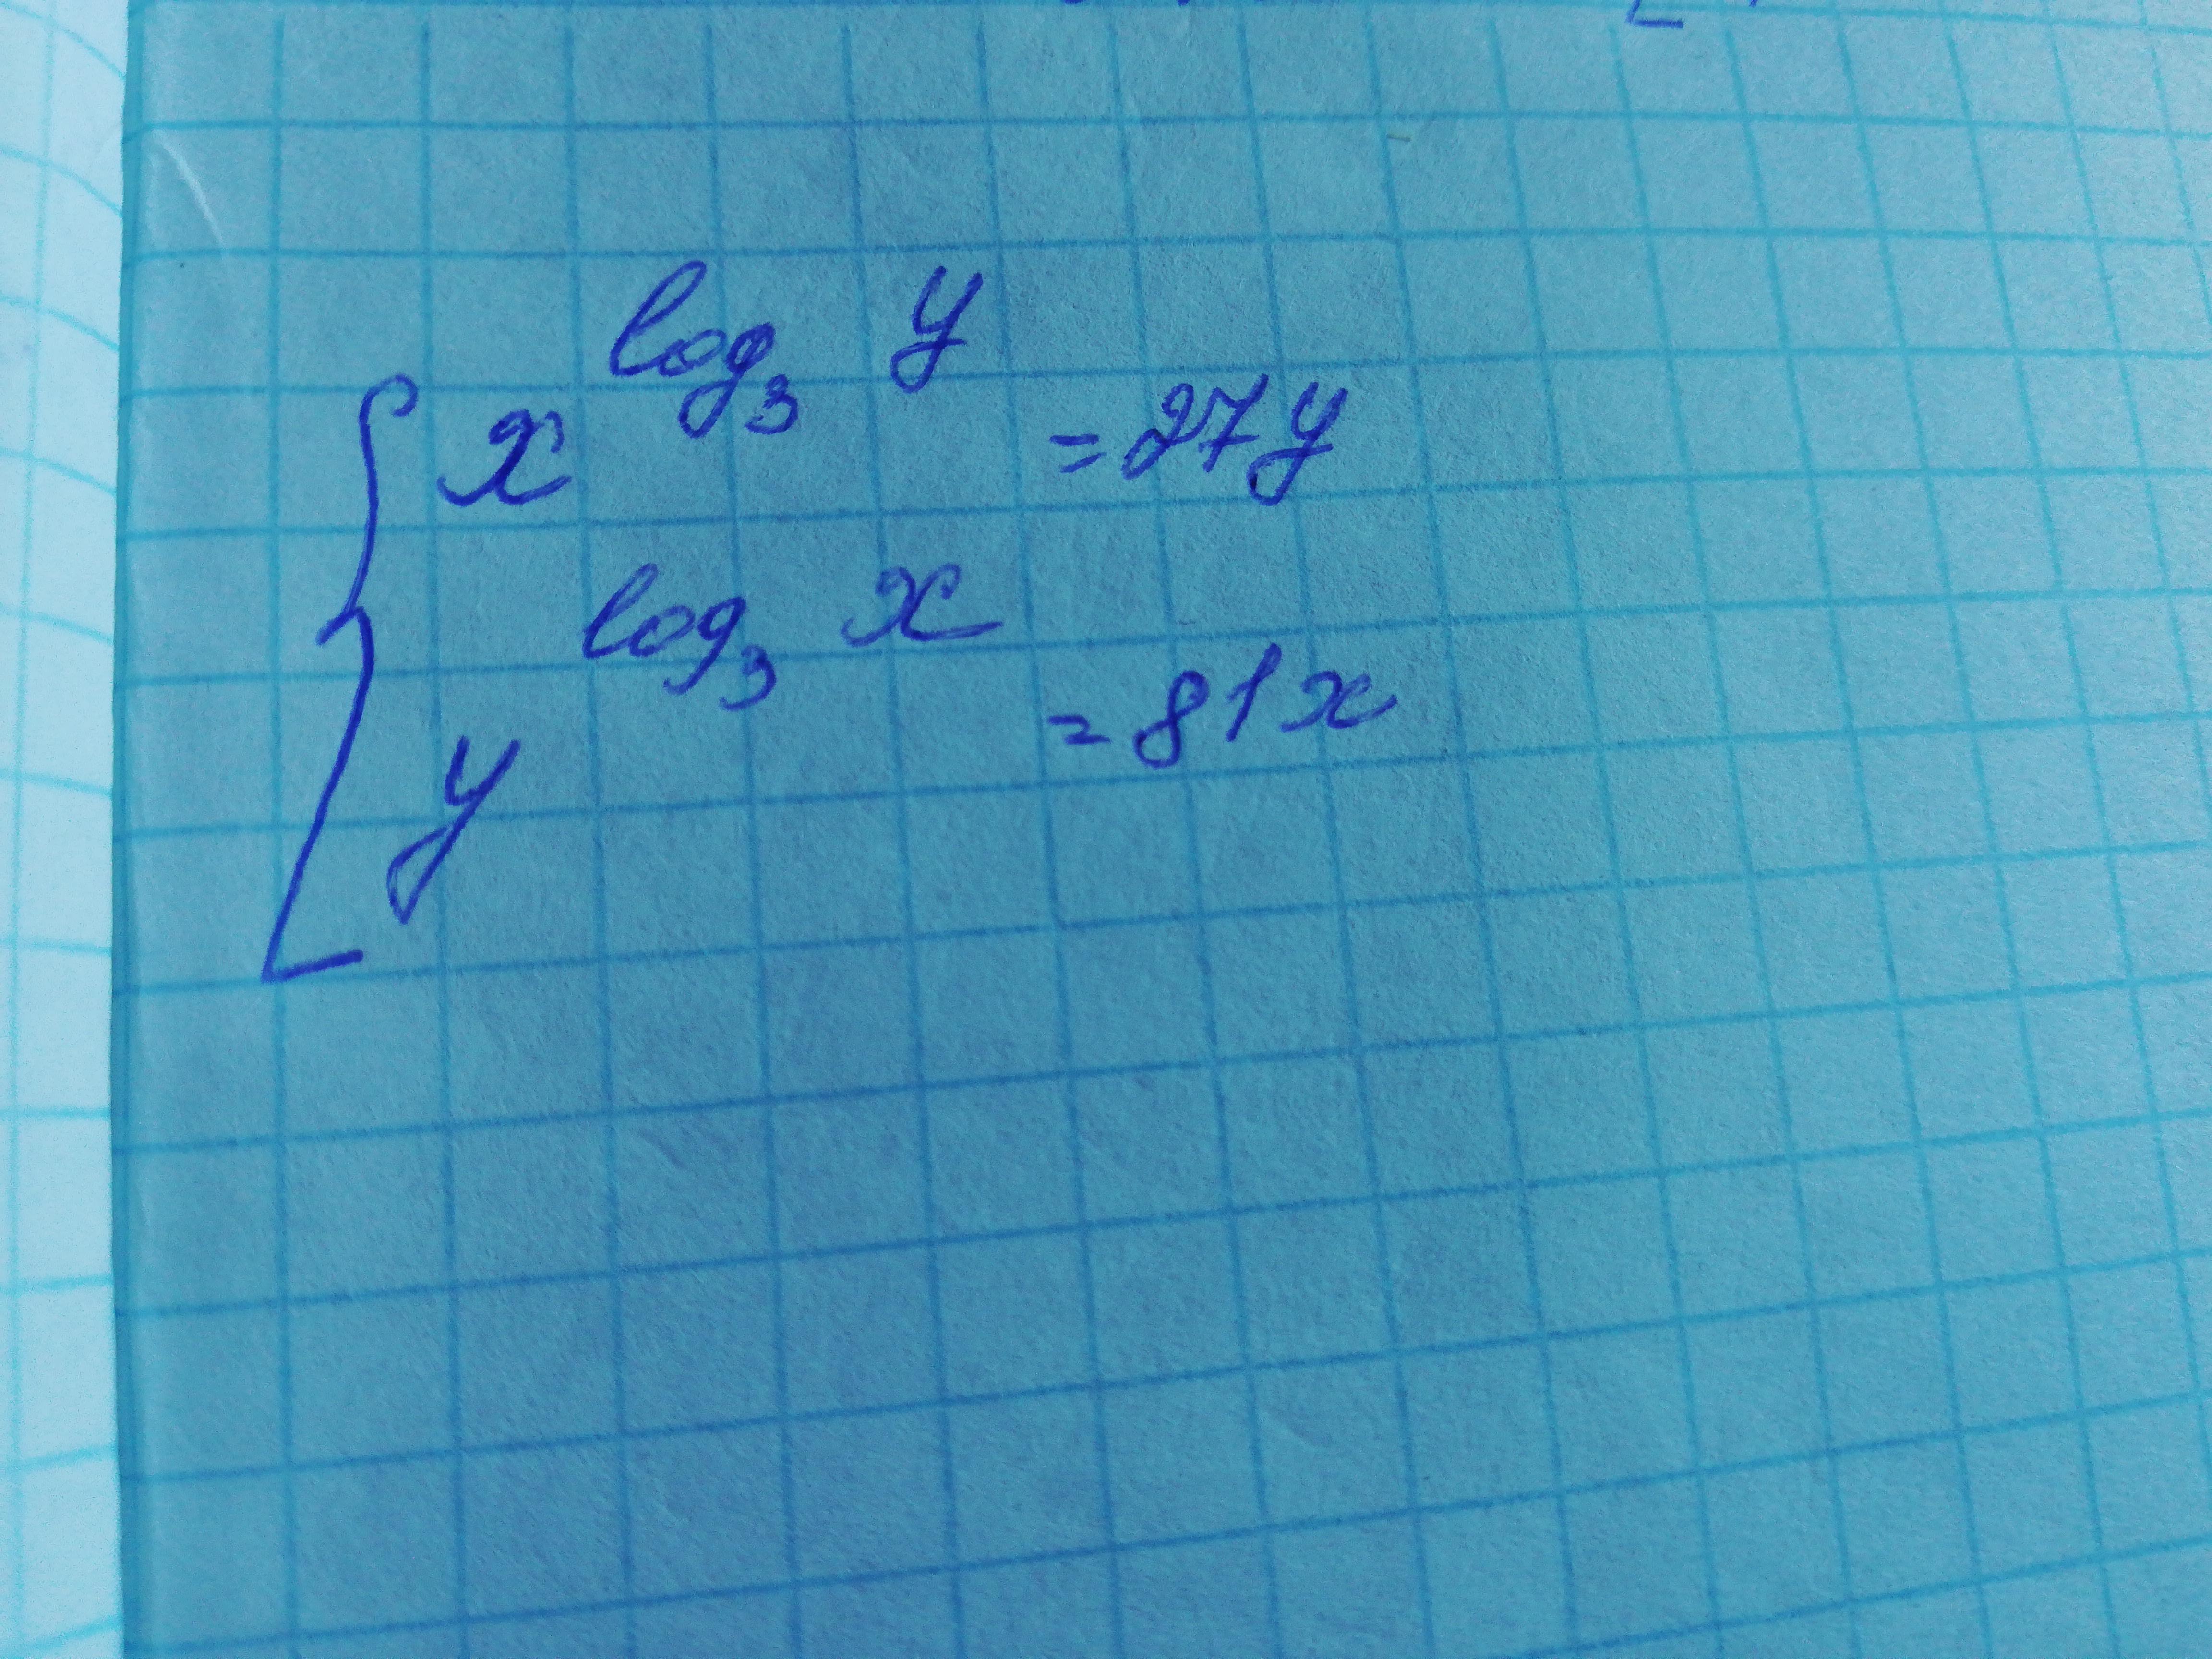 x^{log_3 y} = 27y
y^{log_3 x} = 81x